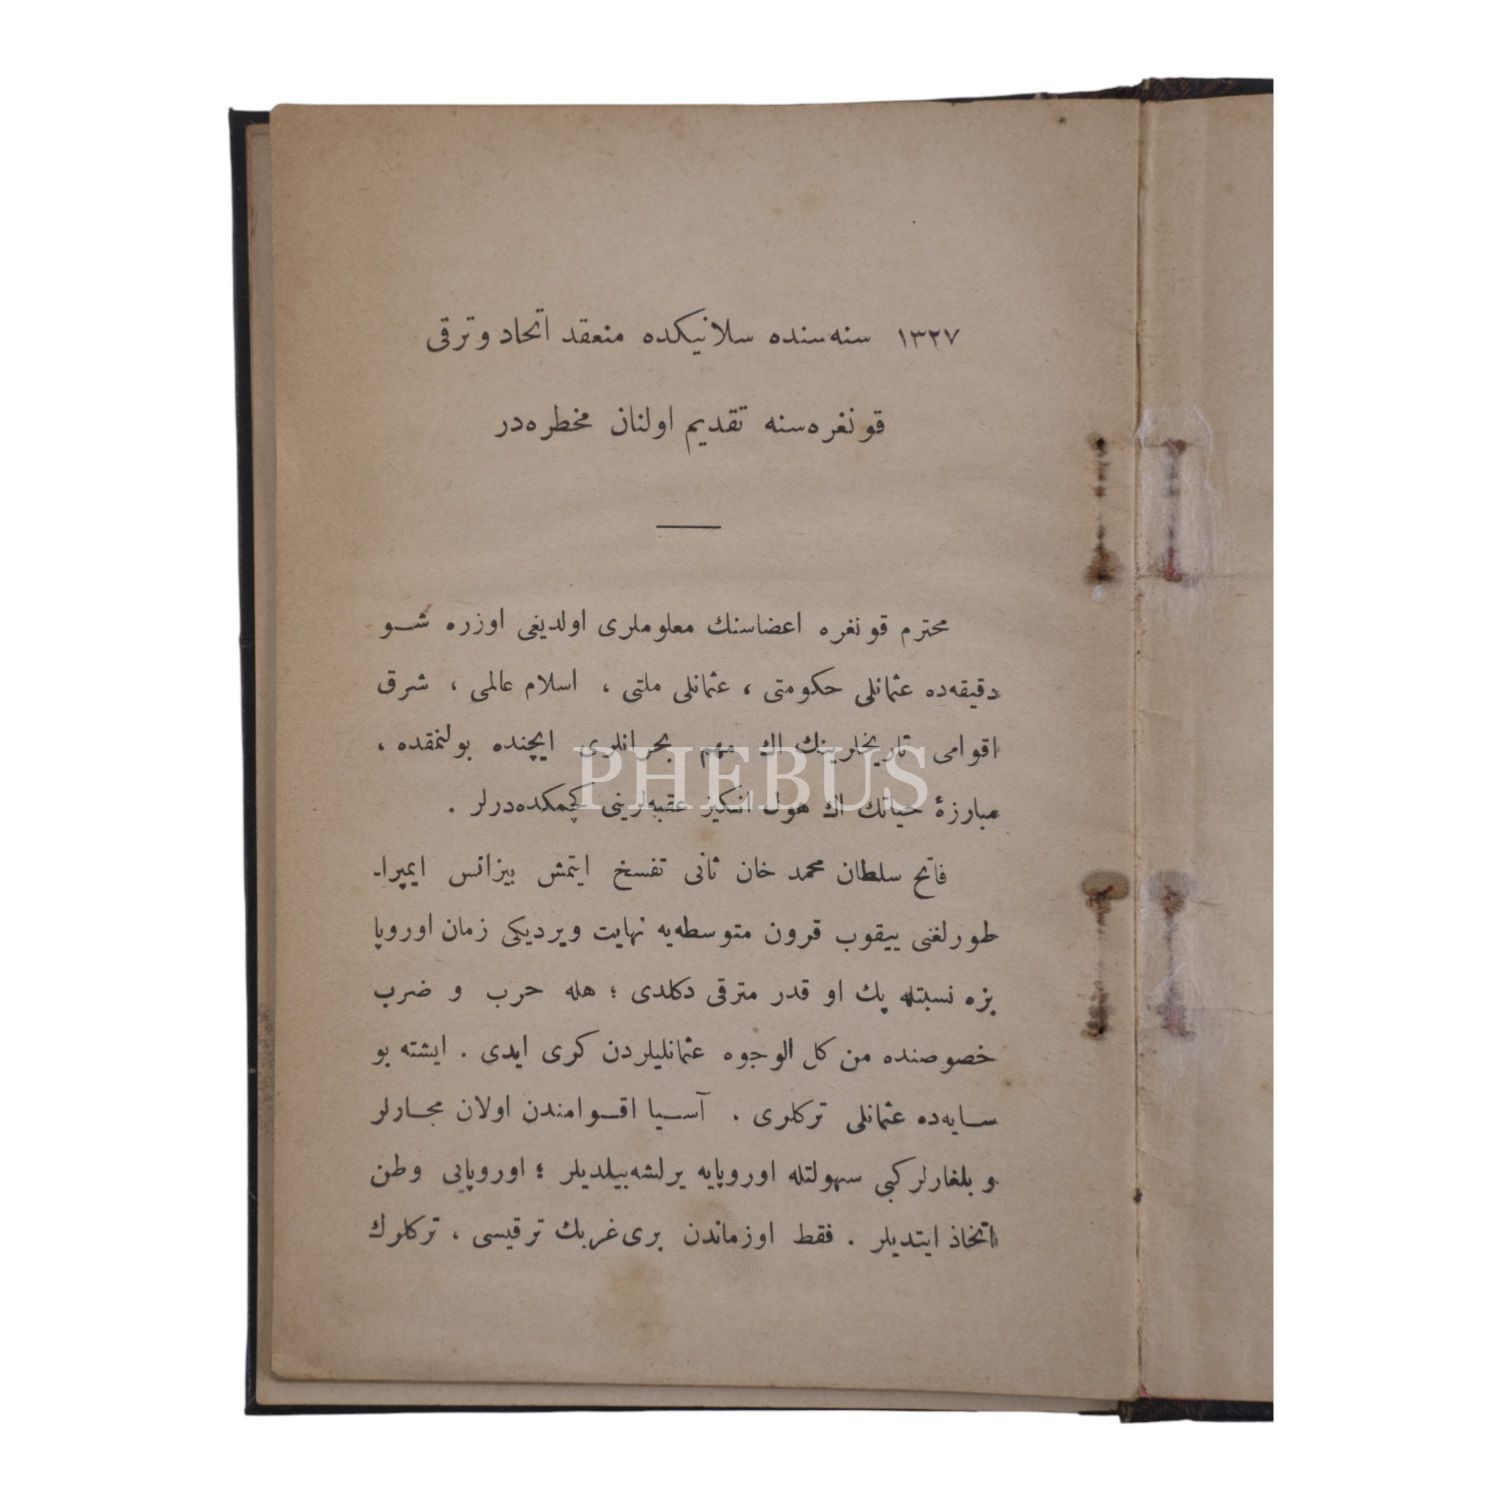 ١٣٢٧ سنه‌سنده سلانیکده منعقد اتحاد وترقی
قونغره‌سنه تقدیم اولنان مخطره‌در
محترم قونغره اعضاسنك معلوملری اولدیغی اوزره شو
دقیقه‌ده عثمانلی حکومتی ، عثمانلی ملتی ، اسلام عالمی ، شرق
اقوامی تاریخلرینك اك مهم بحرانلری ایچنده بولنمقده ،
مبارزۀ حیاتك اك هول انکیز عقبه‌لرینی کچمکده‌درلر .
PHEBUS
فاتح سلطان محمد خان ثانی تفسخ ایتمش بیزانس ایمپرا-
طورلغنی ییقوب قرون متوسطه‌یه نهایت ویردیکی زمان اوروپا
بزه نسبتله پك او قدر مترقی دکلدی ؛ هله حرب و ضرب
خصوصنده من کل الوجوه عثمانلیلردن کری ایدی . ایشته بو
سایه‌ده عثمانلی ترکلری . آسیا اقوامندن اولان مجارلر
و بلغارلرکبی سهولتله اوروپایه یرلشه‌بیلدیلر ؛ اوروپایی وطن
اتخاذ ایتدیلر . فقط اوزماندن بری غربك ترقیسی ، ترکلرك